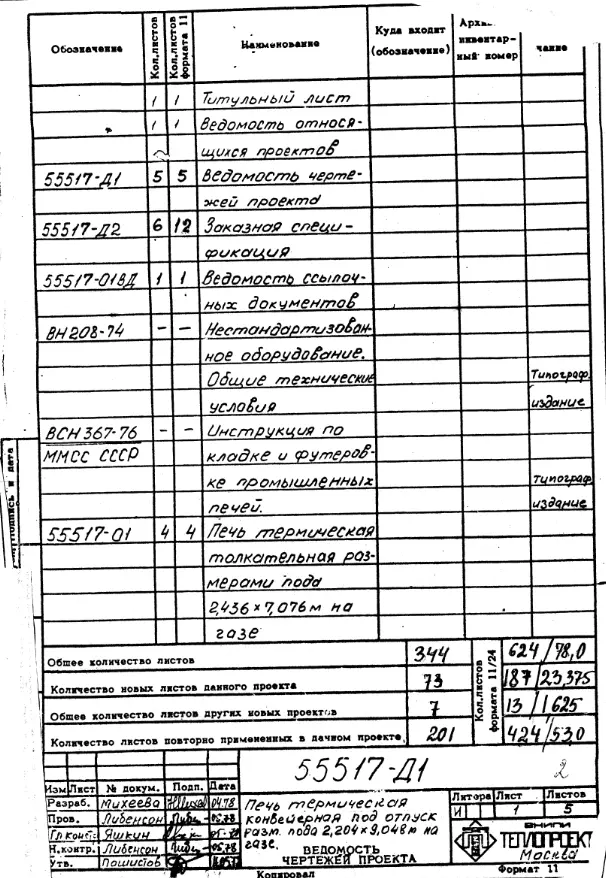 Обозначение Кол.листов Кол.листов формата 11 Наименование Куда входит (обозначение) инвентарный номер чание
1 1 Титульный лист
1 1 Ведомость относя-
щихся проектов
55517-Д1 5 5 Ведомость черте-
жей проекта
55517-Д2 6 12 Заказная специ-
фикация
55517-01ВД 1 1 Ведомость ссылоч-
ных документов
ВН208-74 – – Нестандартизован-
ное оборудование.
Общие технические Типограф.
условия издание
ВСН367-76 – – Инструкция по
ММСС СССР кладке и футеров-
ке промышленных типограф.
печей. издание
55517-01 4 4 Печь термическая
толкательная раз-
мерами пода
2,436×7,076м на
газе
Подпись и дата
Общее количество листов 344 Кол.листов формата 11/24 624/78,0
Количество новых листов данного проекта 73 187/23,375
Общее количество листов других новых проектов 7 13/1625
Количество листов повторно примененных в данном проекте, 201 424/53,0
55517-Д1 2
Изм Лист № докум. Подп. Дата
Разраб. Михеева 04.78
Пров. Либенсон 05.78
Гл.конст. Яшкин
Н.контр. Либенсон 05.78
Утв.
Печь термическая
конвейерная под отпуск
разм. пода 2,204×9,048м на
газе. ВЕДОМОСТЬ
ЧЕРТЕЖЕЙ ПРОЕКТА
Литера Лист Листов
И 1 5
ВНИПИ
ТЕПЛОПРОЕКТ
Москва
Копировал Формат 11